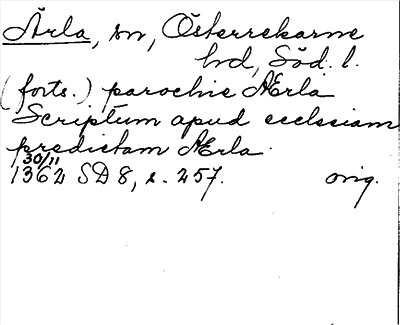 Ärla, sn, Österrekarne
hd, Söd. l.
(forts.) parochie Ærla
Scriptum apud ecclesiam
predictam Ærla.
30/11
1362 SD 8, s. 257. orig.